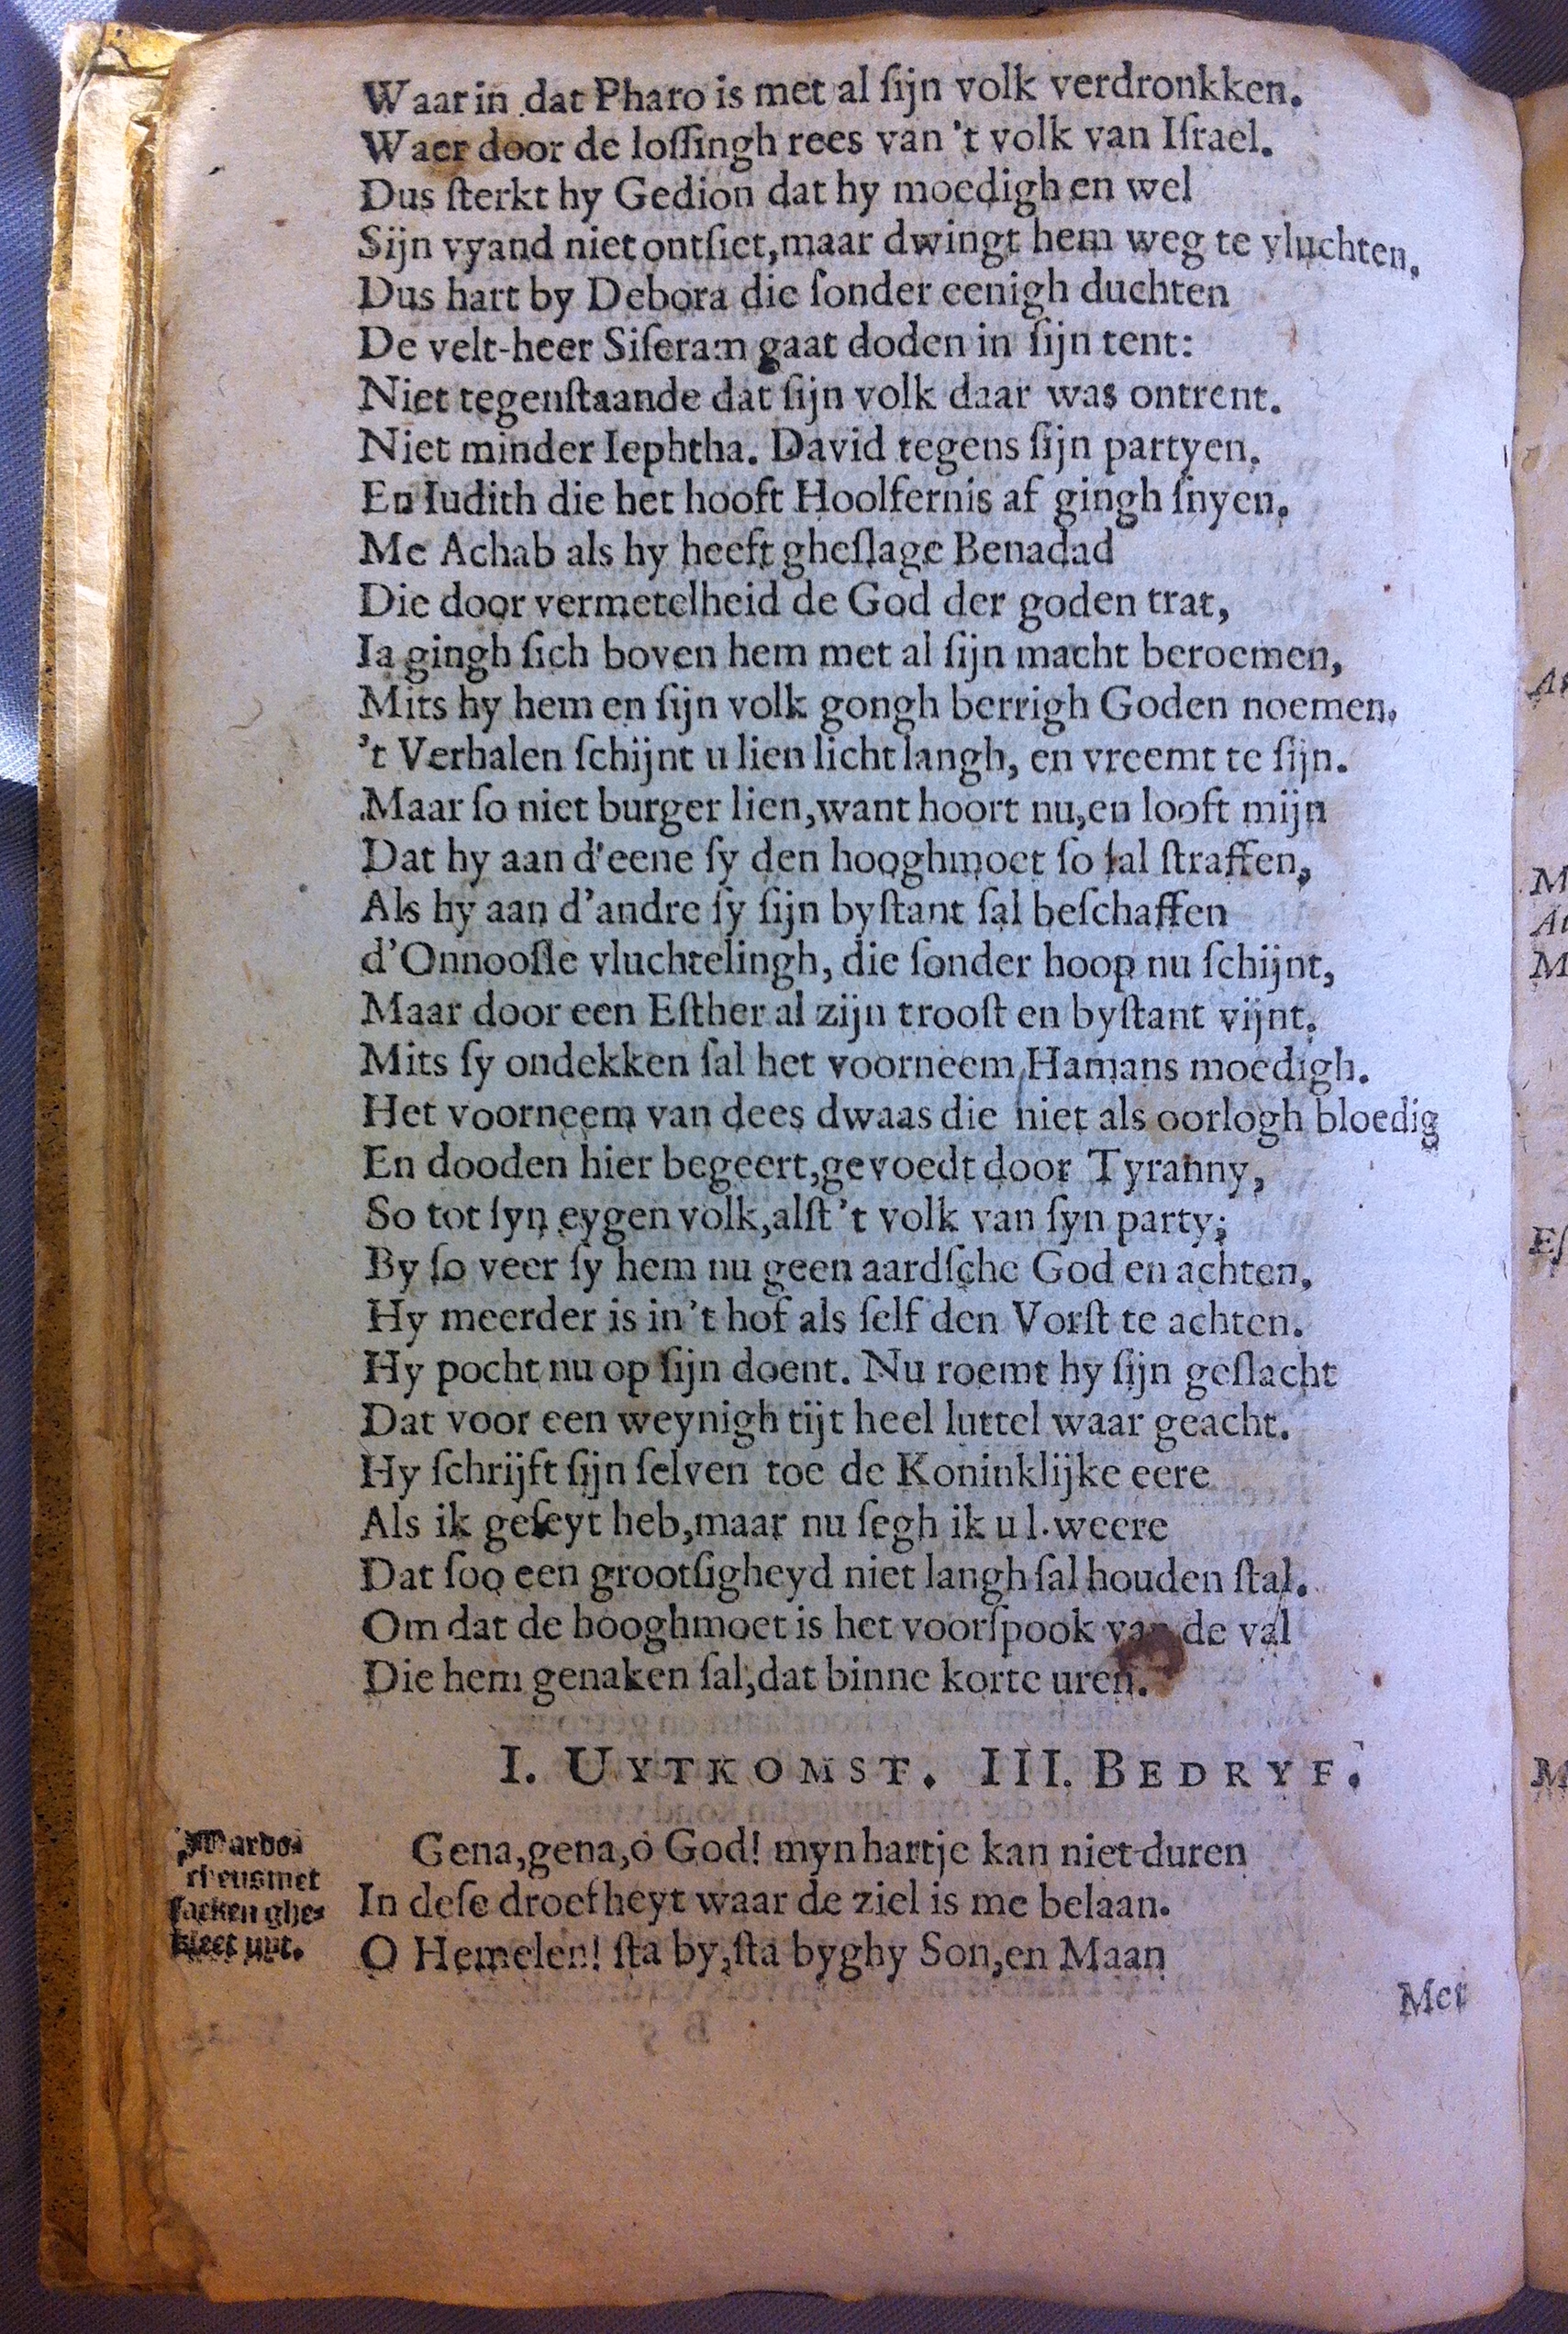 Waar in dat Pharo is met al ſijn volk verdronkken.
Waer door de loſſingh rees van 't volk van Iſrael.
Dus ſterkt hy Gedion dat hy moedigh en wel
Sijn vyand niet ontſiet, maar dwingt hem weg te vluchten.
Dus hart by Debora die ſonder eenigh duchten
De velt-heer Siſeram gaat doden in ſijn tent:
Niet tegenſtaande dat ſijn volk daar was ontrent.
Niet minder Iephtha. David tegens ſijn partyen.
En Iudith die het hooft Hoolfernis af gingh ſnyen.
Me Achab als hy heeft gheſlage Benadad
Die door vermetelheid de God der goden trat,
Ia gingh ſich boven hem met al ſijn macht beroemen,
Mits hy hem en ſijn volk gongh berrigh Goden noemen.
't Verhalen ſchijnt u lien licht langh, en vreemt te ſijn.
Maar ſo niet burger lien, want hoort nu, en looft mijn
Dat hy aan d'eene ſy den hooghmoet ſo ſal ſtraffen,
Als hy aan d'andre ſy ſijn byſtant ſal beſchaffen
d'Onnooſle vluchtelingh, die ſonder hoop nu ſchijnt,
Maar door een Eſther al zijn trooſt en byſtant vijnt.
Mits ſy ondekken ſal het voorneem Hamans moedigh.
Het voorneem van dees dwaas die niet als oorlogh bloedig
En dooden hier begeert, gevoedt door Tyranny,
So tot ſyn eygen volk, alſt 't volk van ſyn party;
By ſo veer ſy hem nu geen aardſche God en achten.
Hy meerder is in 't hof als ſelf den Vorſt te achten.
Hy pocht nu op ſijn doent. Nu roemt hy ſijn geſlacht
Dat voor een weynigh tijt heel luttel waar geacht.
Hy ſchrijft ſijn ſelven toe de Koninklijke eere
Als ik geſeyt heb, maar nu ſegh ik u l. weere
Dat ſoo een grootſigheyd niet langh ſal houden ſtal.
Om dat de hooghmoet is het voorſpook van de val
Die hem genaken ſal, dat binne korte uren.
I. UYTKOMST. III. BEDRYF.
Mardo-
cheus met
ſacken ghe-
kleet uyt.
Gena, gena, o God! myn hartje kan niet duren
In deſe droefheyt waar de ziel is me belaan.
O Hemelen! ſta by, ſta by ghy Son, en Maan
Met